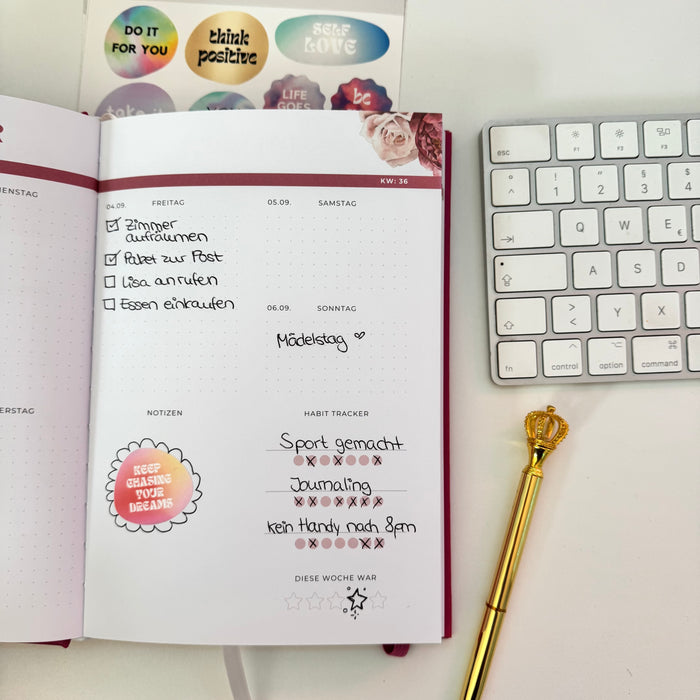 DO IT
FOR YOU
think
positive
SELF
LOVE
take it
LIFE
GOES
be
R
KW: 36
IENSTAG
04.09. FREITAG
Zimmer
aufräumen
Paket zur Post
Lisa anrufen
Essen einkaufen
05.09. SAMSTAG
06.09. SONNTAG
Mädelstag
ERSTAG
NOTIZEN
KEEP
CHASING
YOUR
DREAMS
HABIT TRACKER
Sport gemacht
Journaling
Kein Handy nach 8pm
DIESE WOCHE WAR
esc F1 F2 F3
° ^ ! 1 " 2 § 3 $ 4
Q W E €
A S D
> < Y X
fn control option command
^ ⌥ ⌘